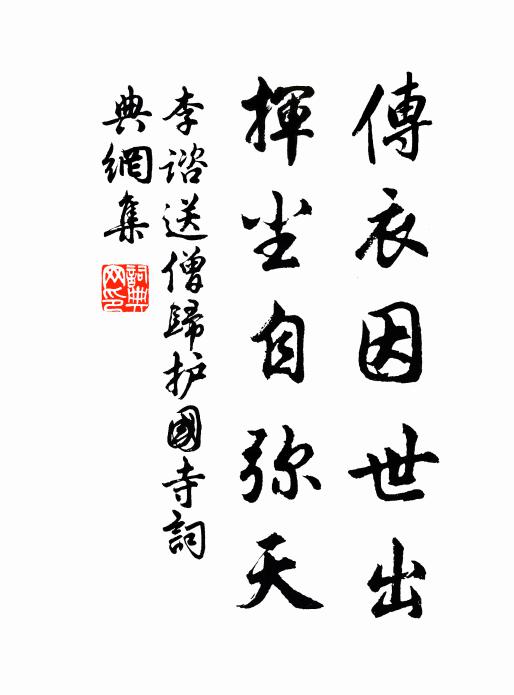 傳衣因世出
揮尘自弥天
李谘送僧歸护國寺詞
典網集
詞典
网印